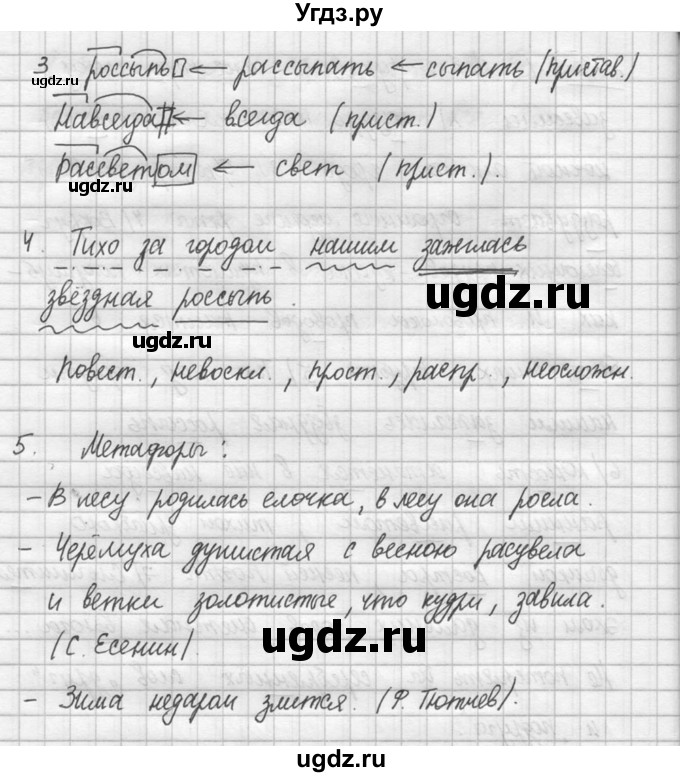 Угдз.ру
3 россыпь ← рассыпать ← сыпать (пристав.)
ugdz.ru
Навсегда ← всегда (прист.)
ugdz.ru
Рассветом ← свет (прист.).
4. Тихо за городом нашим зажглась
ugdz.ru
звёздная россыпь.
ugdz.ru
Повест., невоскл., прост., распр., неосложн.
5. Метафоры:
– В лесу родилась елочка, в лесу она росла.
– Черёмуха душистая с весною расцвела
и ветки золотистые, что кудри, завила.
(С. Есенин).
ugdz.ru
– Зима недаром злится. (Ф. Тютчев).
ugdz.ru
ugdz.ru